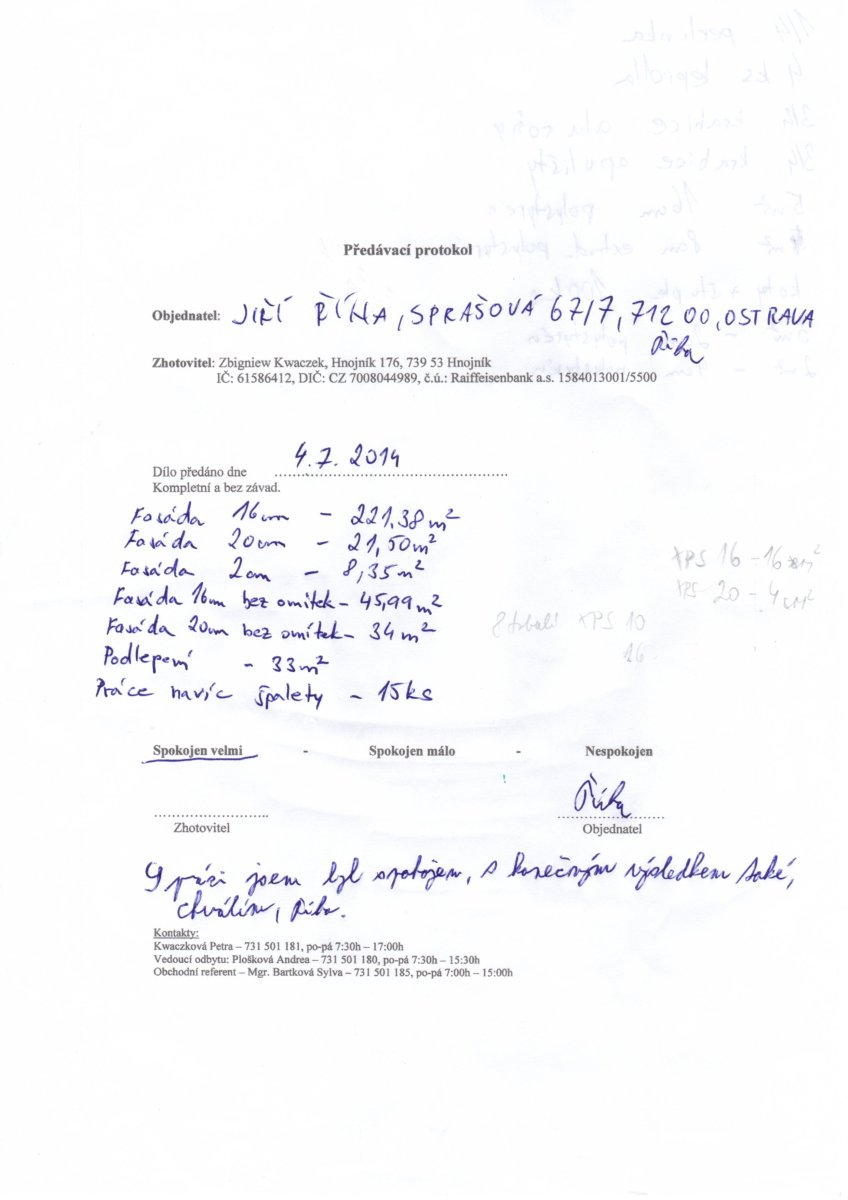 Předávací protokol
Objednatel: JIŘÍ ŘÍHA, SPRAŠOVÁ 67/7, 712 00, OSTRAVA
Říha
Zhotovitel: Zbigniew Kwaczek, Hnojník 176, 739 53 Hnojník
IČ: 61586412, DIČ: CZ 7008044989, č.ú.: Raiffeisenbank a.s. 1584013001/5500
Dílo předáno dne 4.7. 2014
Kompletní a bez závad.
Fasáda 16cm - 221,38 m²
Fasáda 20cm - 21,50 m²
Fasáda 2cm - 8,35 m²
XPS 16 - 16 m²
Fasáda 16cm bez omítek - 45,99 m²
XPS 20 - 4 m²
Fasáda 20cm bez omítek - 34 m²
XPS 10
16
Podlepení - 33 m²
Práce navíc špalety - 15ks
Spokojen velmi - Spokojen málo - Nespokojen
Říha
Zhotovitel Objednatel
S prací jsem byl spokojem, s konečným výsledkem také,
chválím, Říha.
Kontakty:
Kwaczková Petra – 731 501 181, po-pá 7:30h – 17:00h
Vedoucí odbytu: Plošková Andrea – 731 501 180, po-pá 7:30h – 15:30h
Obchodní referent – Mgr. Bartková Sylva – 731 501 185, po-pá 7:00h – 15:00h